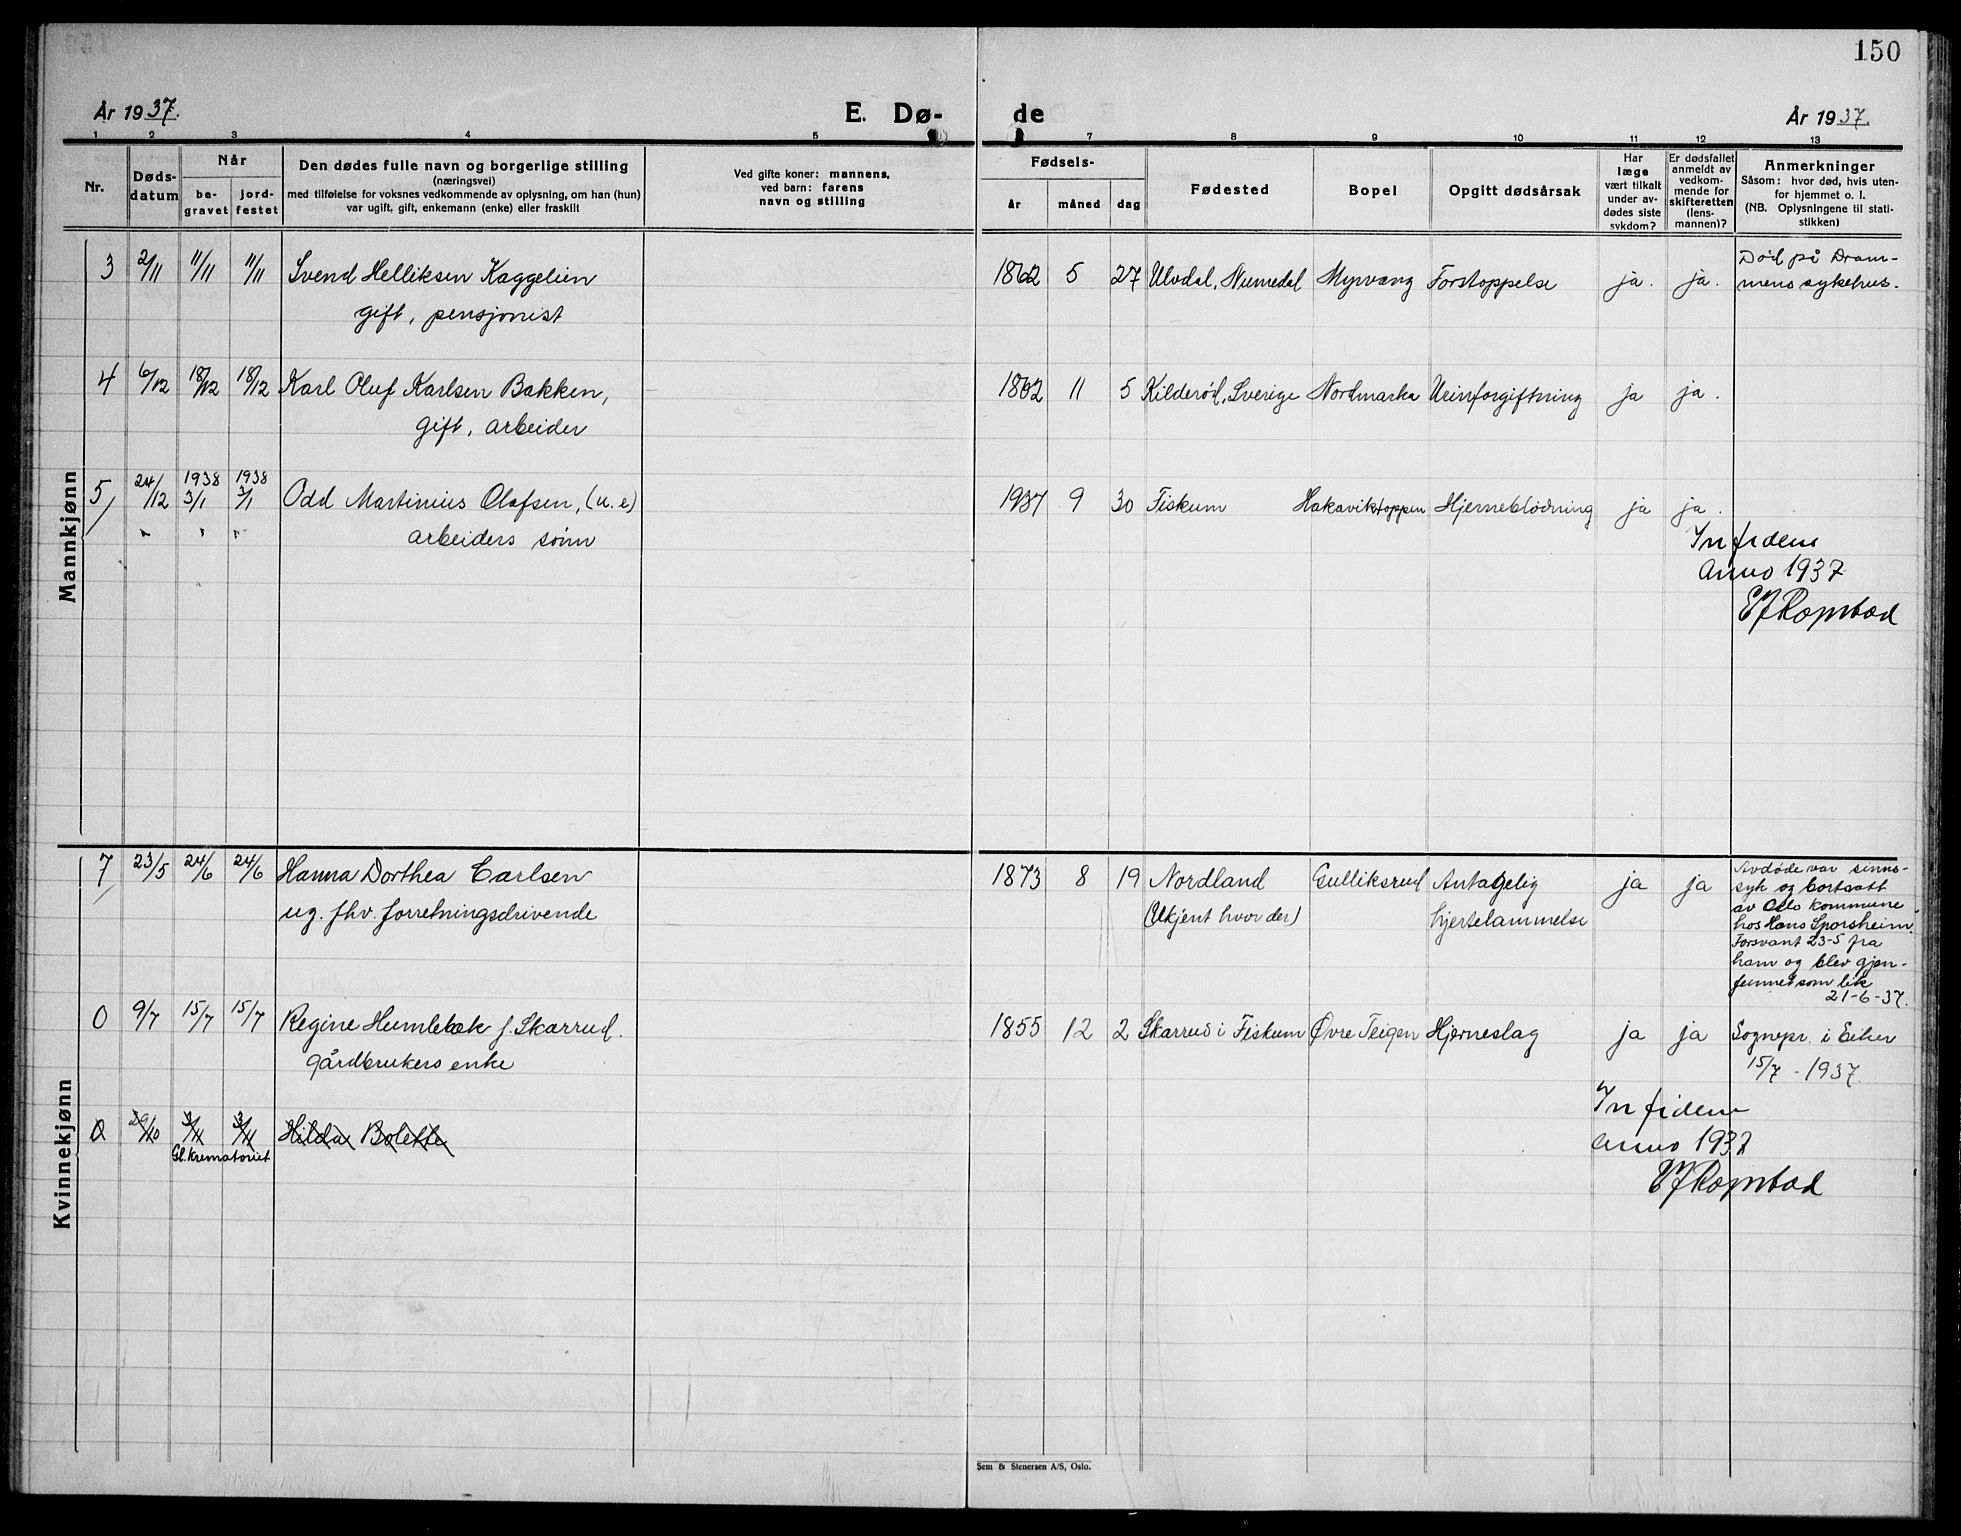 150
År 1937.
E. Dø-
de
År 1937.
1 2 3 4 5 7 8 9 10 11 12 13
Nr.
Døds-
datum
Når
be-
gravet
jord-
festet
Den dødes fulle navn og borgerlige stilling
(næringsvei)
med tilføielse for voksnes vedkommende av oplysning, om han (hun)
var ugift, gift, enkemann (enke) eller fraskilt
Ved gifte koner: mannens,
ved barn: farens
navn og stilling
Fødsels-
år måned dag
Fødested
Bopel
Opgitt dødsårsak
Har
læge
vært tilkalt
under av-
dødes siste
sykdom?
Er dødsfallet
anmeldt av
vedkom-
mende for
skifteretten
(lens-
mannen)?
Anmerkninger
Såsom: hvor død, hvis uten-
for hjemmet o. l.
(NB. Oplysningene til stati-
stikken)
Mannkjønn
3 2/11 11/11 11/11 Svend Helliksen Kaggelien
gift, pensjonist
1862 5 27 Uvdal, Numedal Myrvang Forstoppelse ja. ja.
Død på Dram-
mens sykehus.
4 6/12 18/12 18/12 Karl Oluf Karlsen Bakken,
gift, arbeider
1862 11 5 Kilderød, Sverige Nordmarka Urinforgiftning ja ja.
5 24/12 1938 3/1 1938 3/1 Odd Martinius Olafsen, (u. e)
arbeiders sønn
1937 9 30 Fiskum Hakaviktoppen Hjerneblødning ja ja.
In fidem
Anno 1937
Kvinnekjønn
7 23/5 24/6 24/6 Hanna Dorthea Carlsen
ug. fhv. forretningsdrivende
1873 8 19 Nordland Gulliksrud Antagelig ja ja
(Ukjent hvor der) hjertelammelse
Avdøde var sinns-
syk og bortsatt
av Oslo kommune
hos Hans Sporsheim.
Forsvant 23-5 fra
ham og blev gjen-
funnet som lik
21-6-37.
0 9/7 15/7 15/7 Regine Humlebæk f. Skarrud.
gårdbrukers enke
1855 12 2 Skarrud i Fiskum Øvre Teigen Hjerneslag ja ja Sognepr. i Eiker
15/7 - 1937.
0 29/10 3/11 3/11 Hilda Bolette
Gl. Krematoriet
In fidem
anno 1937
Sem & Stenersen A/S, Oslo.